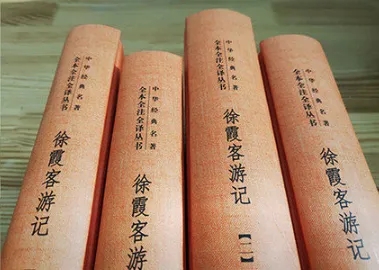 中华经典名著
全本全注全译丛书
徐霞客游记
中华经典名著
全本全注全译丛书
徐霞客游记
中华经典名著
全本全注全译丛书
徐霞客游记
中华经典名著
全本全注全译丛书
徐霞客游记